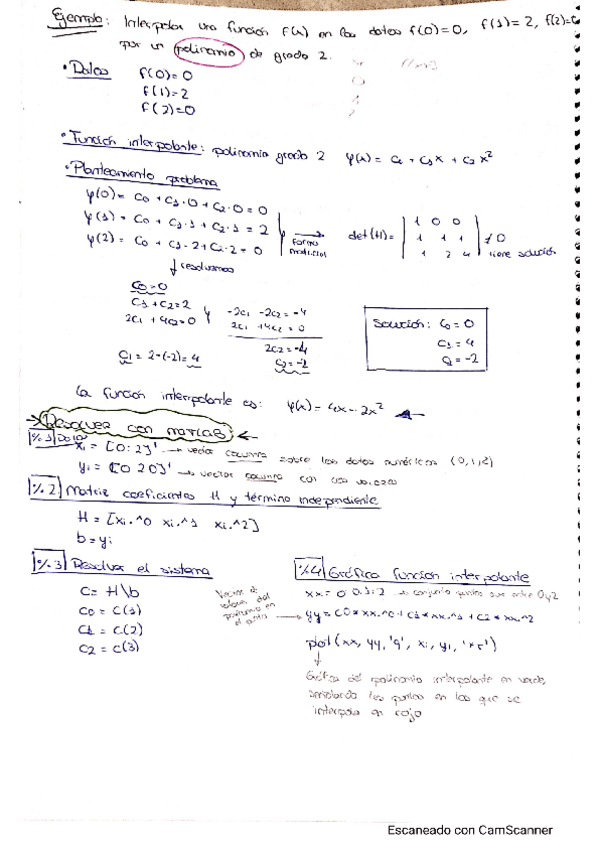 Ejemplo: Interpolar una función f(x) en los datos f(0)=0, f(1)=2, f(2)=0
por un polinomio de grado 2.
• Datos f(0)=0
f(1)=2
f(2)=0
• Función interpolante: polinomio grado 2 ψ(x)= C0 + C1x + C2x²
• Planteamiento problema
ψ(0)= C0 + C1·0 + C2·0 = 0
ψ(1)= C0 + C1·1 + C2·1 = 2
ψ(2)= C0 + C1·2 + C2·2 = 0
→ forma matricial
det(H)= | 1 0 0 |
| 1 1 1 | ≠ 0
| 1 2 4 | tiene solución
↓ resolvemos
C0 = 0
C1 + C2 = 2
2C1 + 4C2 = 0
y
-2C1 -2C2 = -4
2C1 +4C2 = 0
2C2 = -4
C2 = -2
C1 = 2-(-2) = 4
Solución: C0 = 0
C1 = 4
C2 = -2
La función interpolante es: ψ(x) = 4x - 2x²
Resolver con matlab:
%1 Datos
xi = [0:2]' → vector columna sobre los datos numéricos (0,1,2)
yi = [0 2 0]' → vector columna con sus valores
%2 Matriz coeficientes H y término independiente
H = [xi.^0 xi.^1 xi.^2]
b = yi
%3 Resolver el sistema
C = H\b
C0 = C(1)
C1 = C(2)
C2 = C(3)
%4 Gráfico función interpolante
xx = 0:0.1:2 → conjunto puntos que entre 0 y 2
Vector de valores del polinomio en el →
yy = C0*xx.^0 + C1*xx.^1 + C2*xx.^2
plot(xx, yy, 'g', xi, yi, '*r')
↓
Gráfica del polinomio interpolante en verde,
señalando los puntos en los que se
interpola en rojo
Escaneado con CamScanner